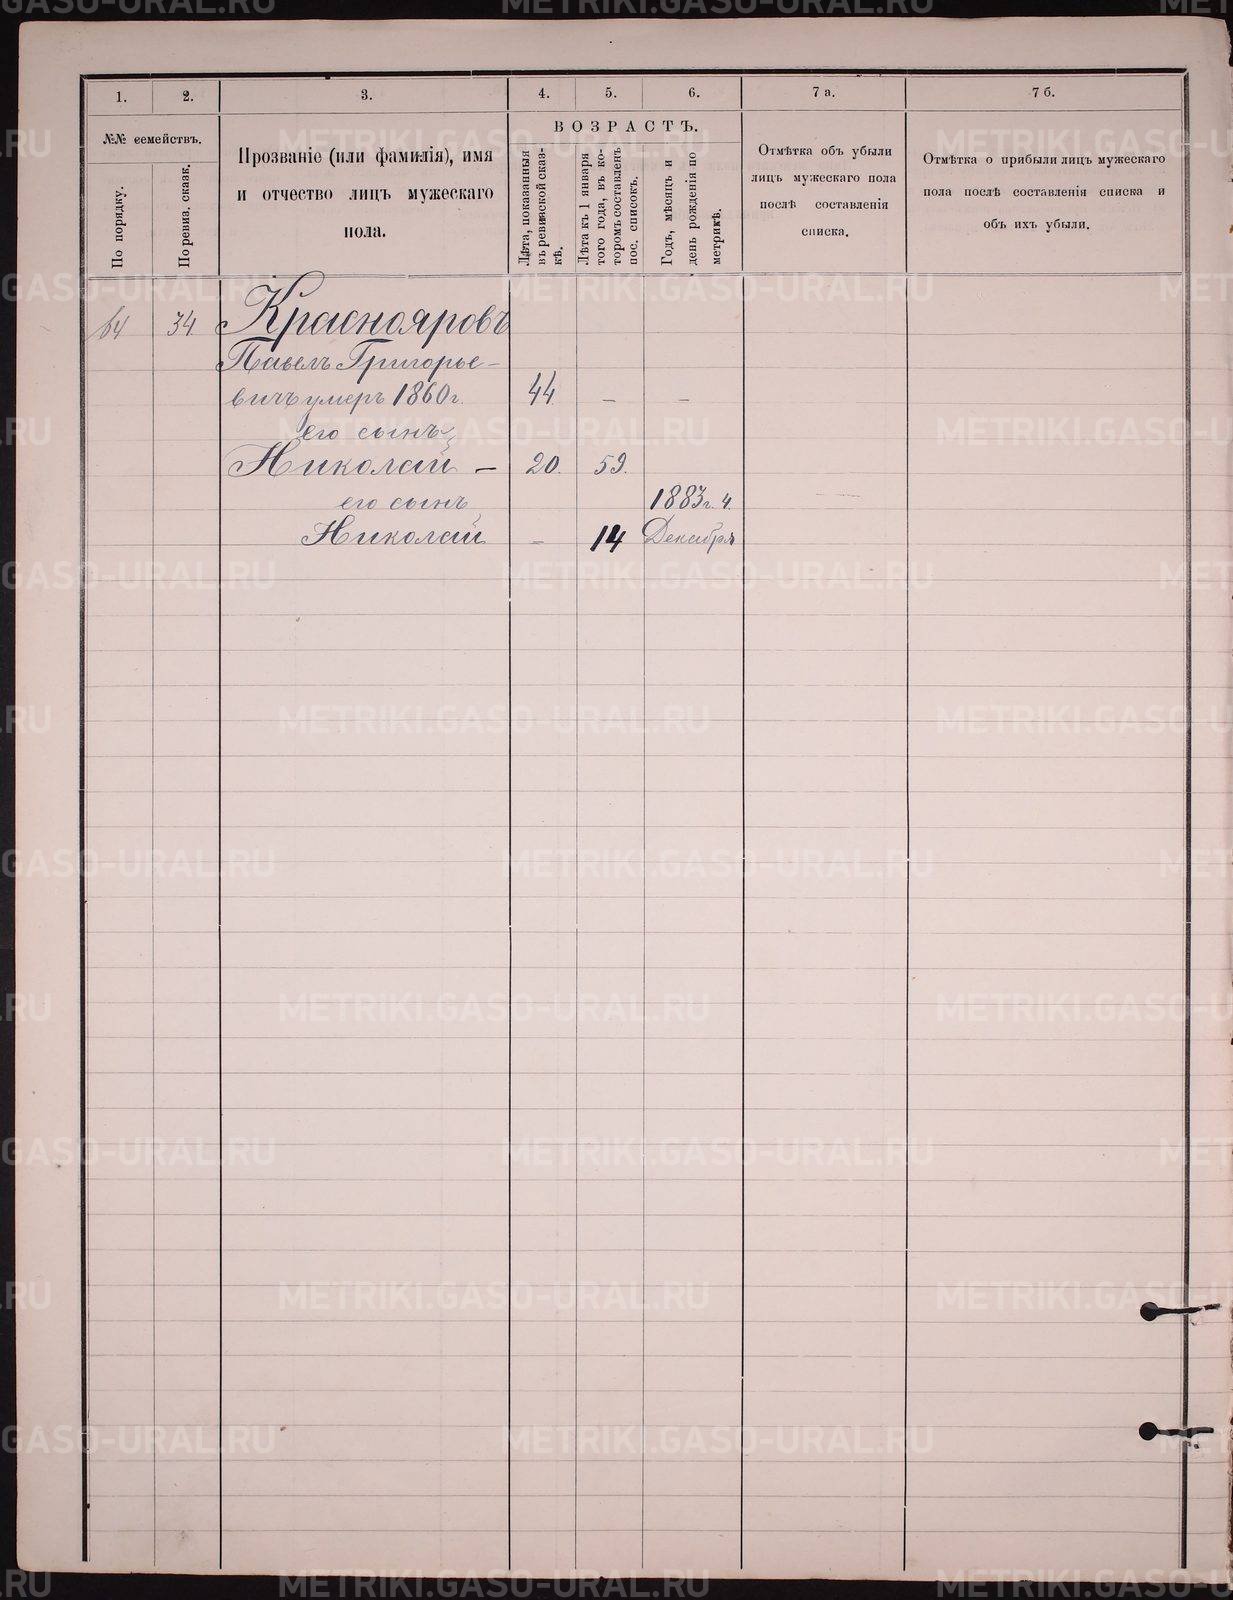 1.
2.
3.
4.
5.
6.
7 а.
7 б.
№№ семействъ.
По порядку.
По ревиз. сказк.
Прозваніе (или фамилія), имя
и отчество лицъ мужескаго
пола.
ВОЗРАСТЪ.
Лѣта, показанныя
въ ревизской сказ-
кѣ.
Лѣта къ 1 января
того года, въ ко-
торомъ составленъ
пос. списокъ.
Годъ, мѣсяцъ и
день рожденія по
метрикѣ.
Отмѣтка объ убыли
лицъ мужескаго пола
послѣ составленія
списка.
Отмѣтка о прибыли лицъ мужескаго
пола послѣ составленія списка и
объ ихъ убыли.
64 34 Краснояровъ
Павелъ Григорье-
вичъ умеръ 1860 г. 44 — —
его сынъ
Николай — 20. 59.
его сынъ 1883 г. 4.
Николай — 14 Декабря
METRIKI.GASO-URAL.RU